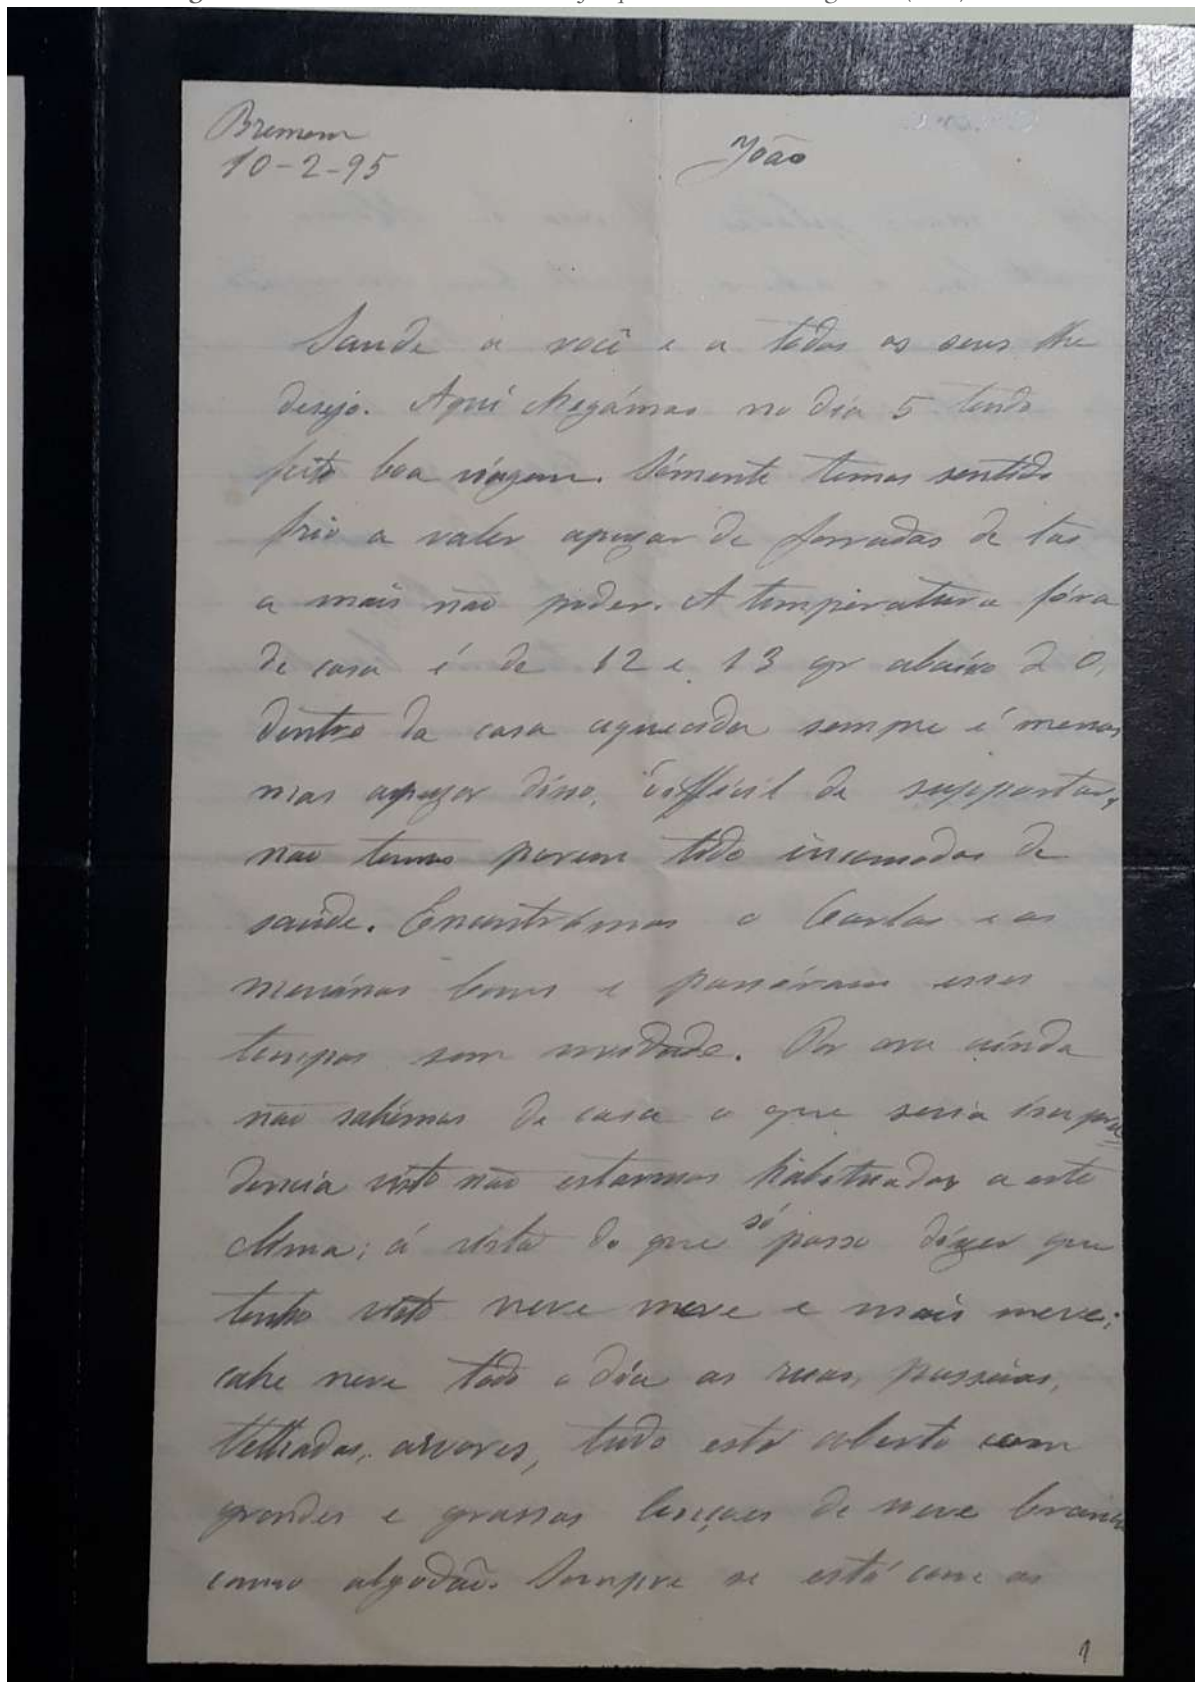 Bremem
10-2-95
João
Saude a você e a todos os seus lhe
desejo. Aqui chegámos no dia 5 tendo
feito boa viagem. Sómente temos sentido
frio a valer apezar de forradas de lãs
a mais não poder. A temperatura fóra
de casa é de 12 e 13 gr abaixo d 0,
dentro da casa aquecida sempre é menos
mas apezar disso, difficil de supportar,
não temos porem tido incomodos de
saúde. Encontrámos o Carlos e os
meninos bons e passáram esses
tempos sem novidade. Por ora ainda
não sahimos de casa o que seria impru
dencia visto não estarmos habituados a este
clima; á vista do que só posso dizer que
tenho visto neve neve e mais neve;
cahe neve todo o dia as ruas, passeios,
telhados, arvores, tudo está coberto com
grandes e grossos lençoes de neve branca
como algodão. Sempre se está com os
1